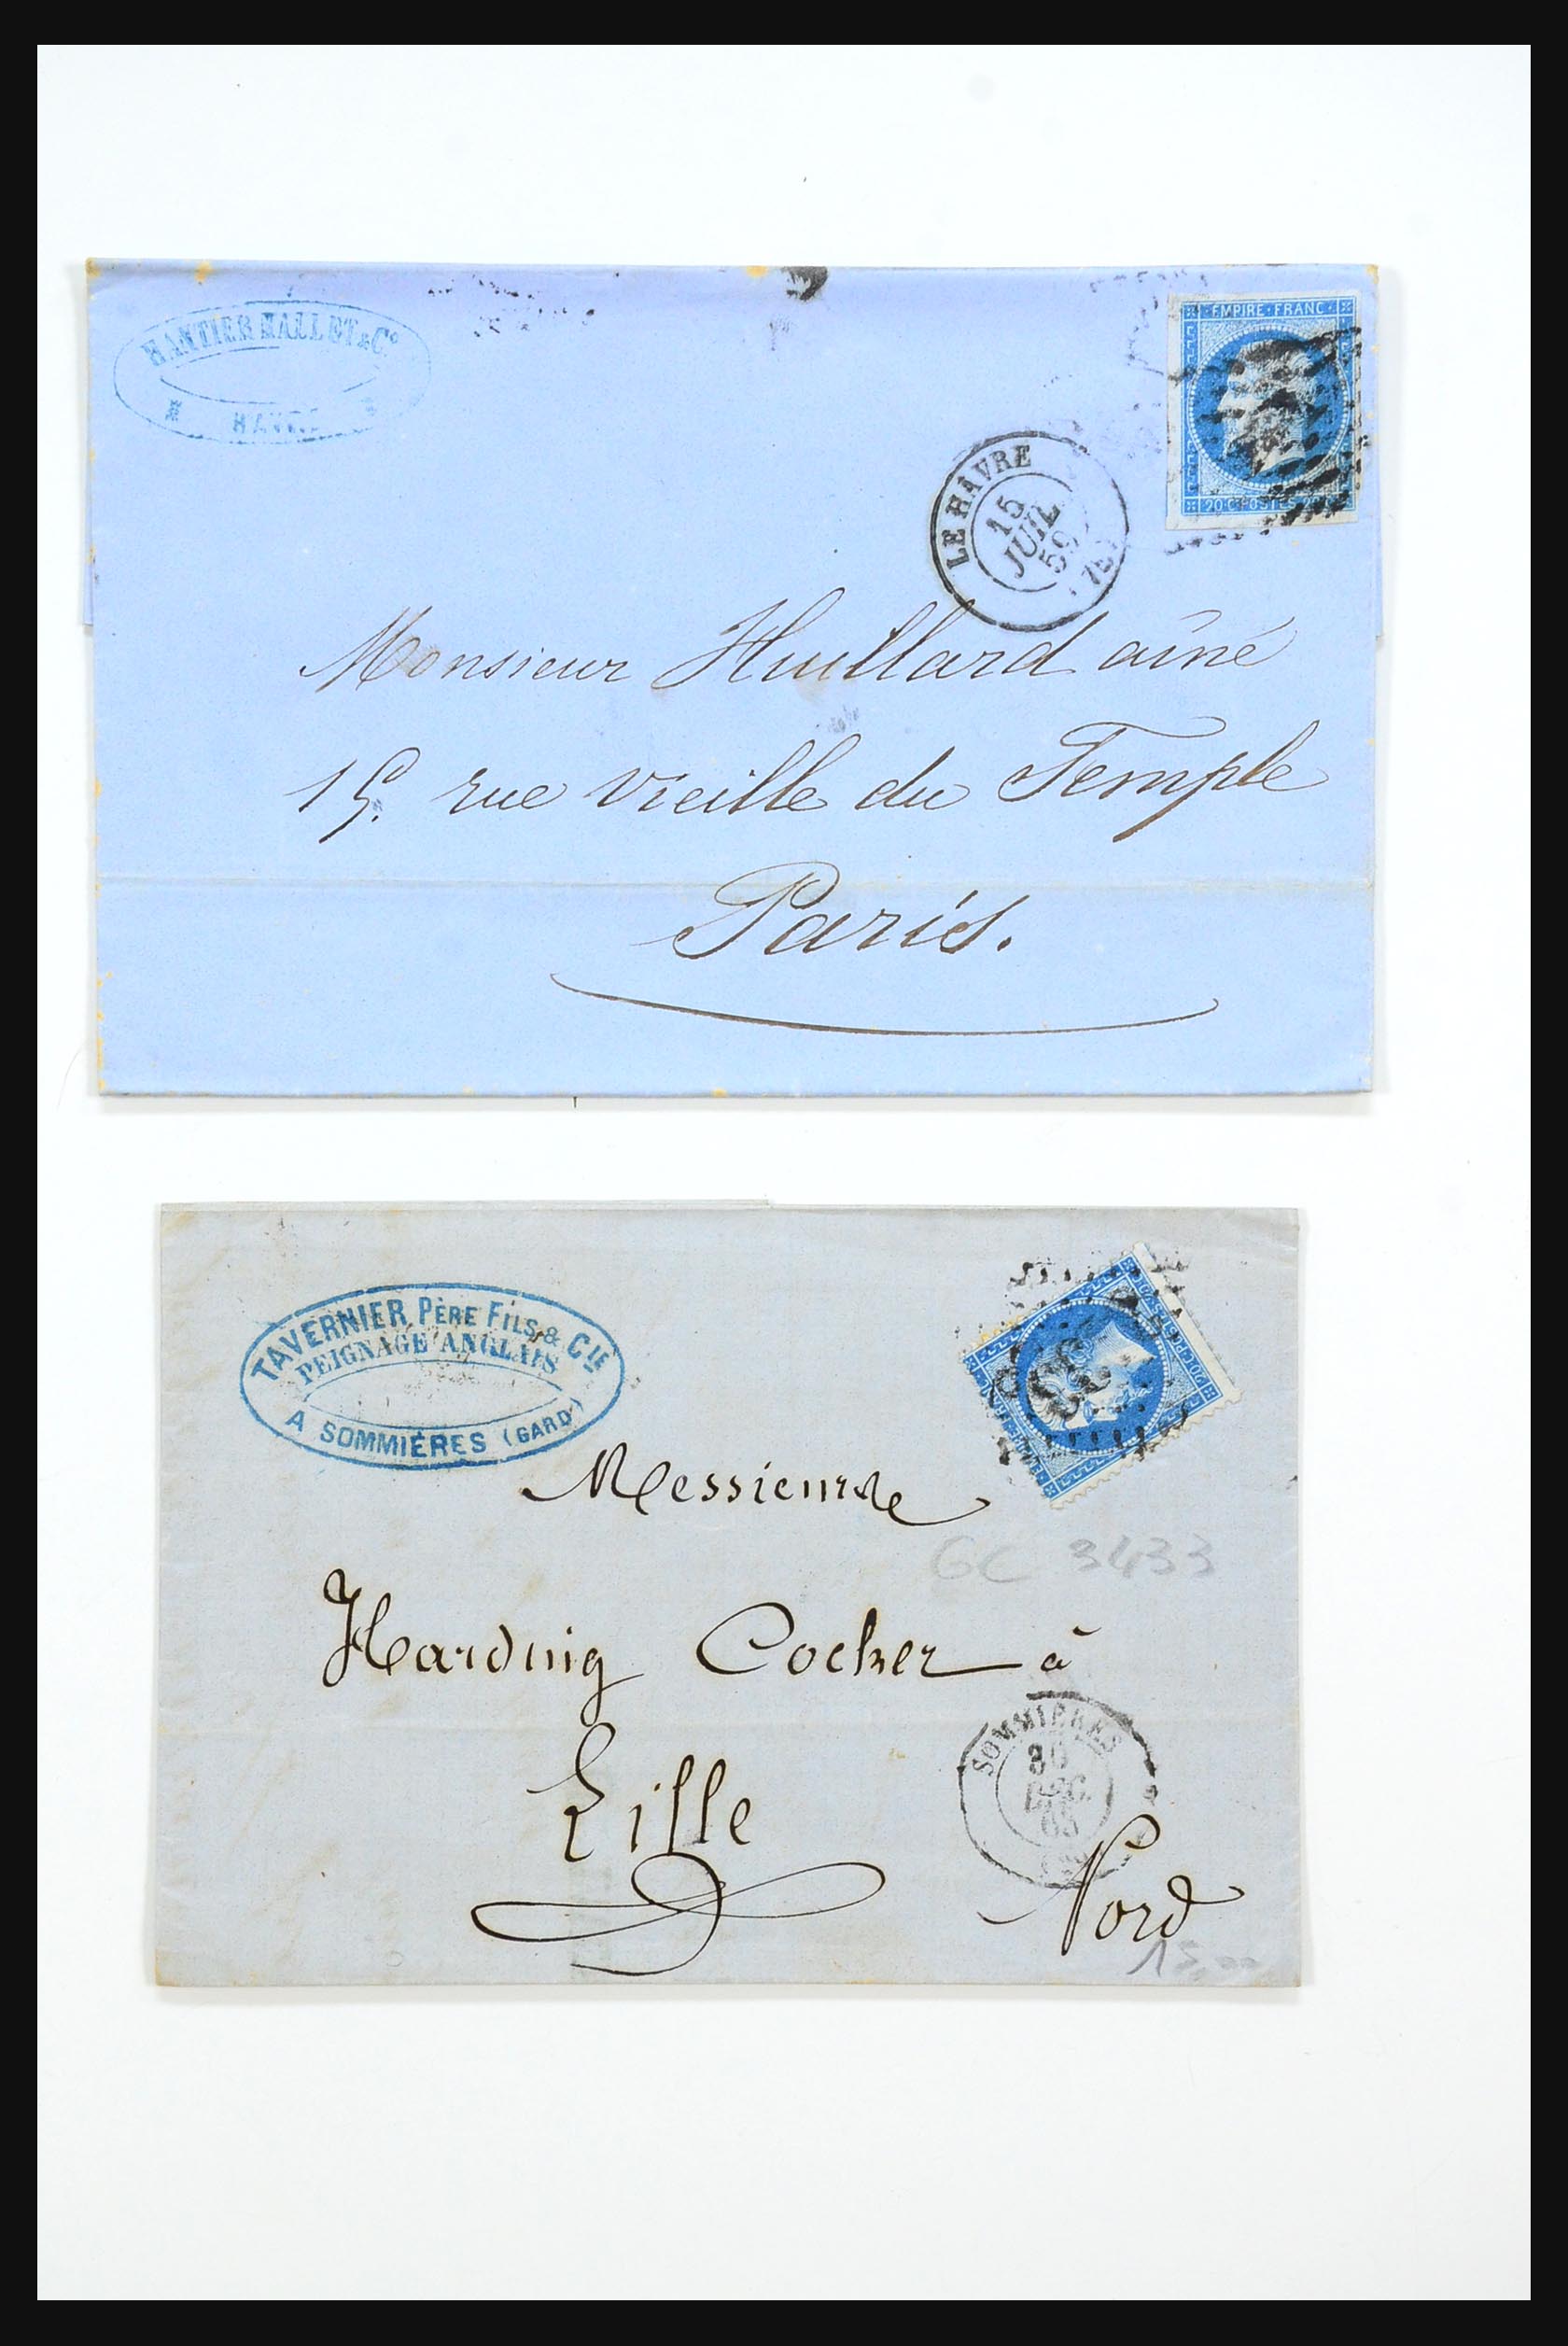 HANTIER MALLET & Cº
HAVRE
EMPIRE · FRANC ·
20 C POSTES 20
LE HÂVRE
15
JUIL
59
Monsieur Huillard aîné
15. rue Vieille du Temple
Paris.
TAVERNIER PÈRE FILS & CIE
PEIGNAGE ANGLAIS
A SOMMIÈRES (GARD)
Messieurs
GC 3433
Harding Cocker à
SOMMIÈRES
30
DEC.
65
Lille
Nord
15,00